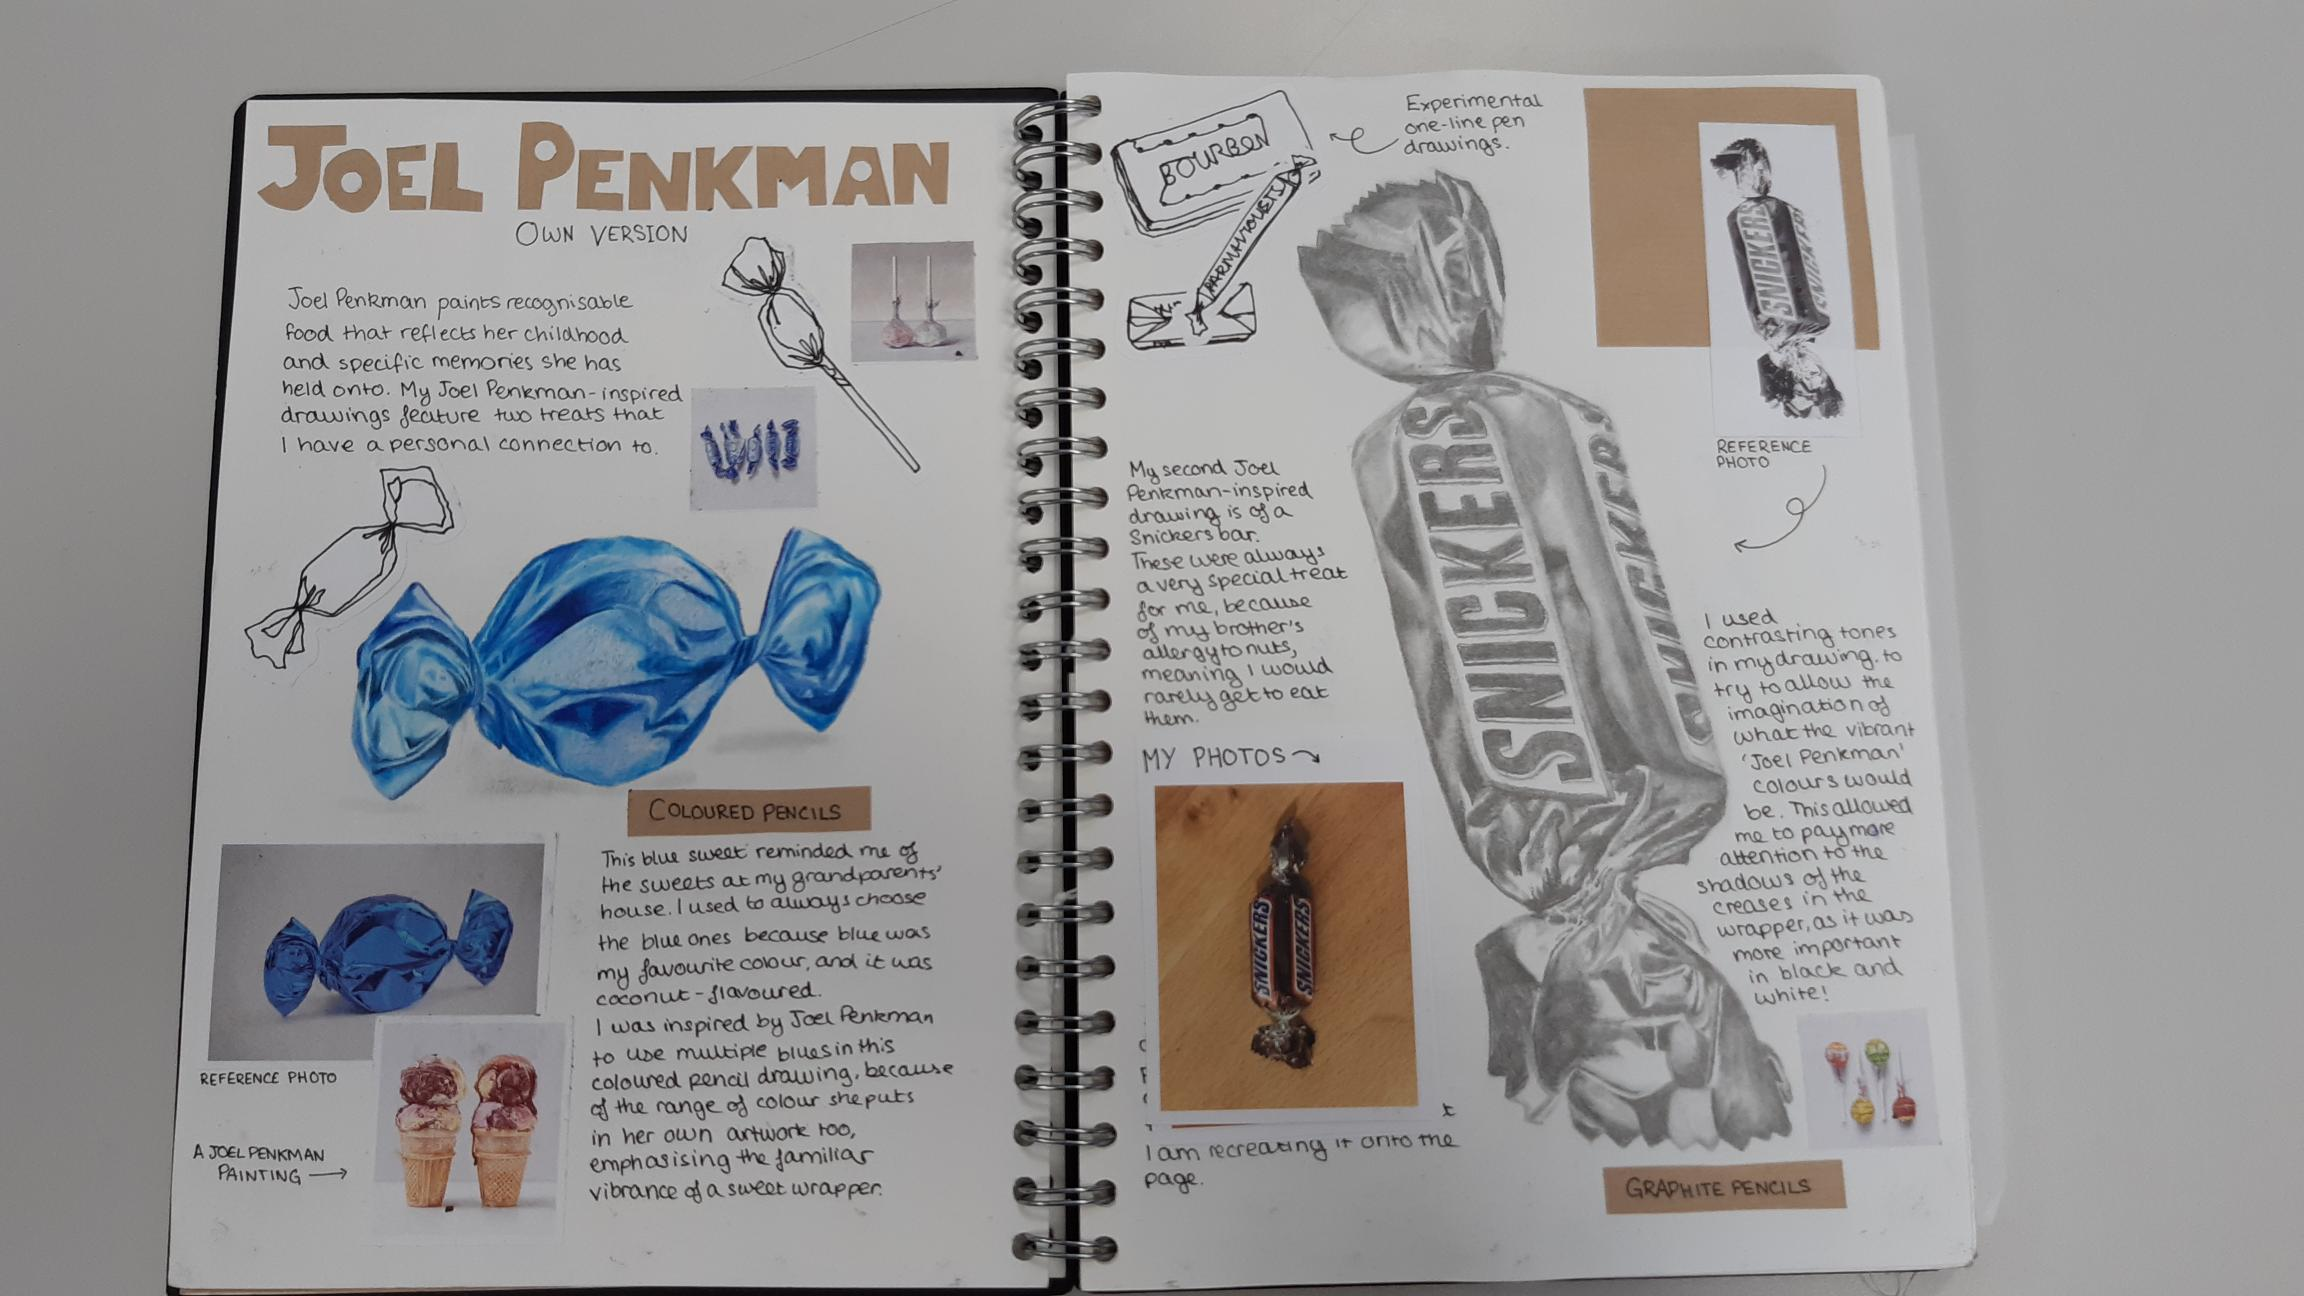 JOEL PENKMAN
OWN VERSION
Joel Penkman paints recognisable
food that reflects her childhood
and specific memories she has
held onto. My Joel Penkman-inspired
drawings feature two treats that
I have a personal connection to.
COLOURED PENCILS
This blue sweet reminded me of
the sweets at my grandparents'
house. I used to always choose
the blue ones because blue was
my favourite colour, and it was
coconut-flavoured.
I was inspired by Joel Penkman
to use multiple blues in this
coloured pencil drawing, because
of the range of colour she puts
in her own artwork too,
emphasising the familiar
vibrance of a sweet wrapper.
REFERENCE PHOTO
A JOEL PENKMAN
PAINTING
BOURBON
PARMA VIOLETS
Experimental
one-line pen
drawings.
SNICKERS
SNICKERS
SNICKERS
SNICKERS
REFERENCE
PHOTO
My second Joel
Penkman-inspired
drawing is of a
Snickers bar.
These were always
a very special treat
for me, because
of my brother's
allergy to nuts,
meaning I would
rarely get to eat
them.
MY PHOTOS
SNICKERS
SNICKERS
I am recreating it onto the
page.
I used
contrasting tones
in my drawing, to
try to allow the
imagination of
what the vibrant
'Joel Penkman'
colours would
be. This allowed
me to pay more
attention to the
shadows of the
creases in the
wrapper, as it was
more important
in black and
white!
GRAPHITE PENCILS